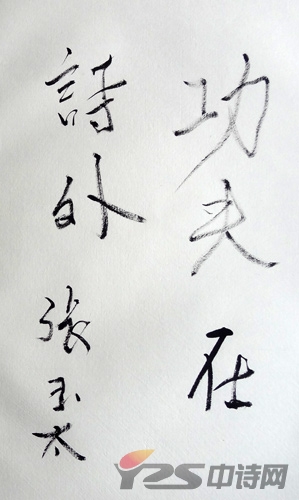 功夫在
詩外
張玉太
YZS中诗网